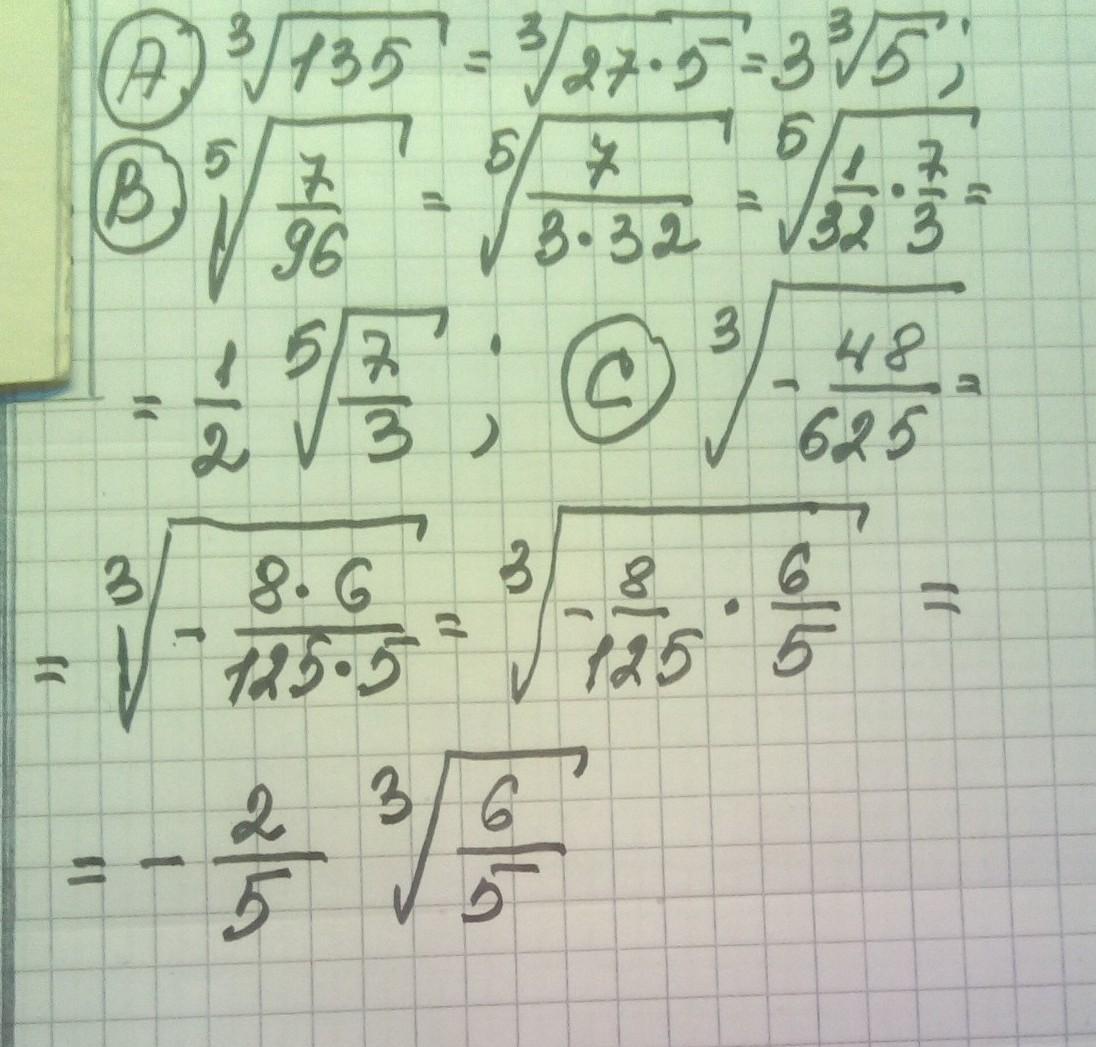 A) ∛135 = ∛(27·5) = 3∛5;
B) ⁵√(7/96) = ⁵√(7/(3·32)) = ⁵√(1/32 · 7/3) =
= 1/2 ⁵√(7/3); C) ∛(-48/625) =
= ∛(-(8·6)/(125·5)) = ∛(-8/125 · 6/5) =
= -2/5 ∛(6/5)